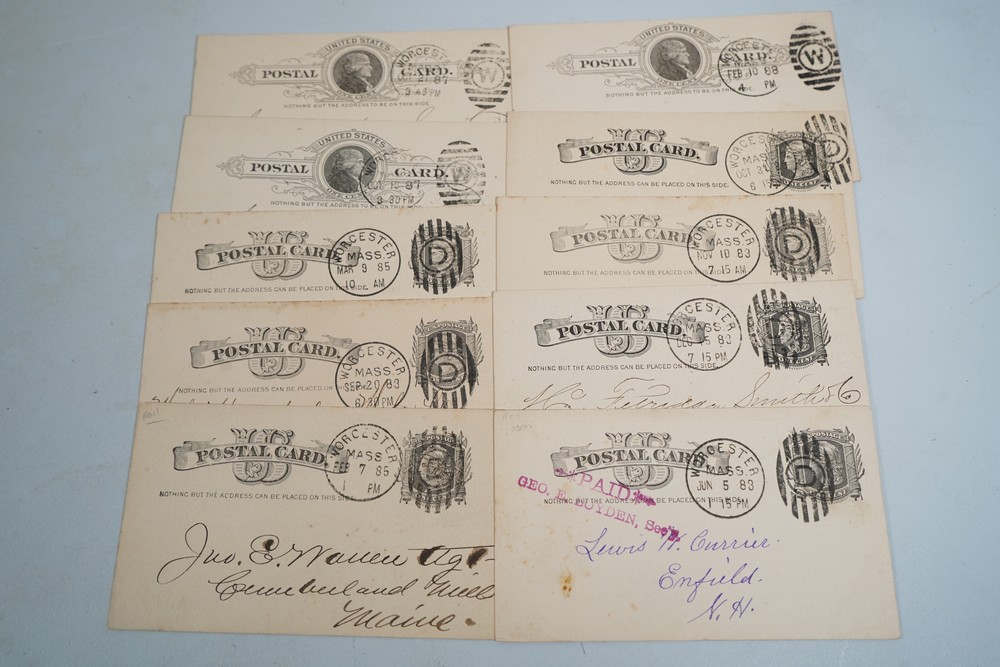 UNITED STATES
POSTAL CARD.
ONE CENT
NOTHING BUT THE ADDRESS TO BE ON THIS SIDE
WORCESTER
87
3 45 PM
W
UNITED STATES
POSTAL CARD.
ONE CENT
NOTHING BUT THE ADDRESS TO BE ON THIS SIDE.
WORCESTER
FEB 10 88
4 PM
W
UNITED STATES
POSTAL CARD.
ONE CENT
NOTHING BUT THE ADDRESS TO BE ON THIS SIDE
WORCESTER
87
8 30 PM
W
US
POSTAL CARD.
NOTHING BUT THE ADDRESS CAN BE PLACED ON THIS SIDE.
WORCESTER
MASS.
OCT 31
6 15
D
US
POSTAL CARD.
NOTHING BUT THE ADDRESS CAN BE PLACED ON THIS SIDE.
WORCESTER
MASS.
MAR 9 85
10 AM
D
US
POSTAL CARD.
NOTHING BUT THE ADDRESS CAN BE PLACED ON THIS SIDE.
WORCESTER
MASS.
NOV 10 83
7 15 AM
D
US
POSTAL CARD.
NOTHING BUT THE ADDRESS CAN BE PLACED ON
WORCESTER
MASS.
SEP 20 83
6 30 PM
D
US
POSTAL CARD.
NOTHING BUT THE ADDRESS CAN BE PLACED ON THIS SIDE.
WORCESTER
MASS.
DEC 5 83
7 15 PM
Smith & Co
US
POSTAL CARD.
NOTHING BUT THE ADDRESS CAN BE PLACED ON THIS SIDE
WORCESTER
MASS
FEB 7 85
1 PM
Jno. E. Warren Agt
Cumberland Mill
Maine.
US
POSTAL CARD.
NOTHING BUT THE ADDRESS CAN BE PLACED ON THIS SIDE.
WORCESTER
MASS.
JUN 5 83
1 15 PM
D
PAID
GEO. E. BOYDEN, Sec'y.
Lewis W. Currier.
Enfield.
N.H.